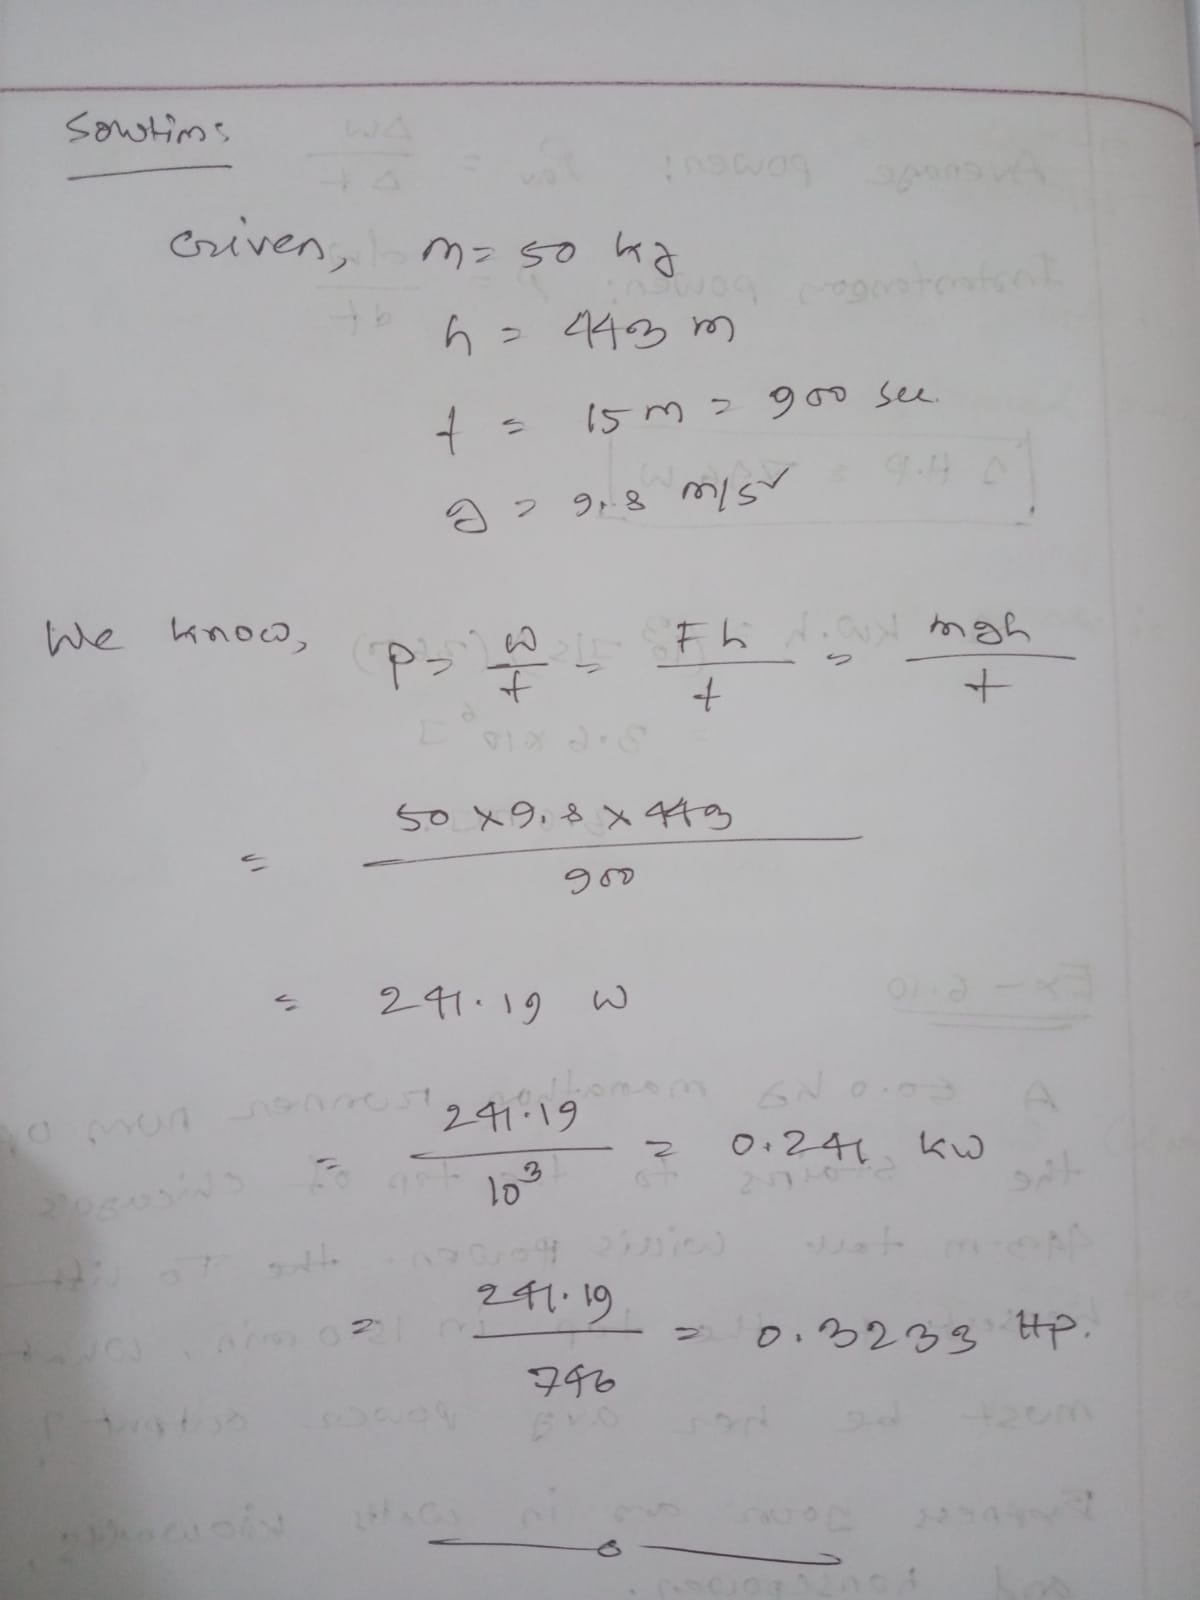 Solution:
Given, m = 50 kg
h = 443 m
t = 15 m = 900 sec.
g = 9.8 m/s²
We know, P = W/t = Fh/t = mgh/t
= 50 × 9.8 × 443 / 900
= 241.19 W
= 241.19 / 10³ = 0.241 kW
= 241.19 / 746 = 0.3233 HP.